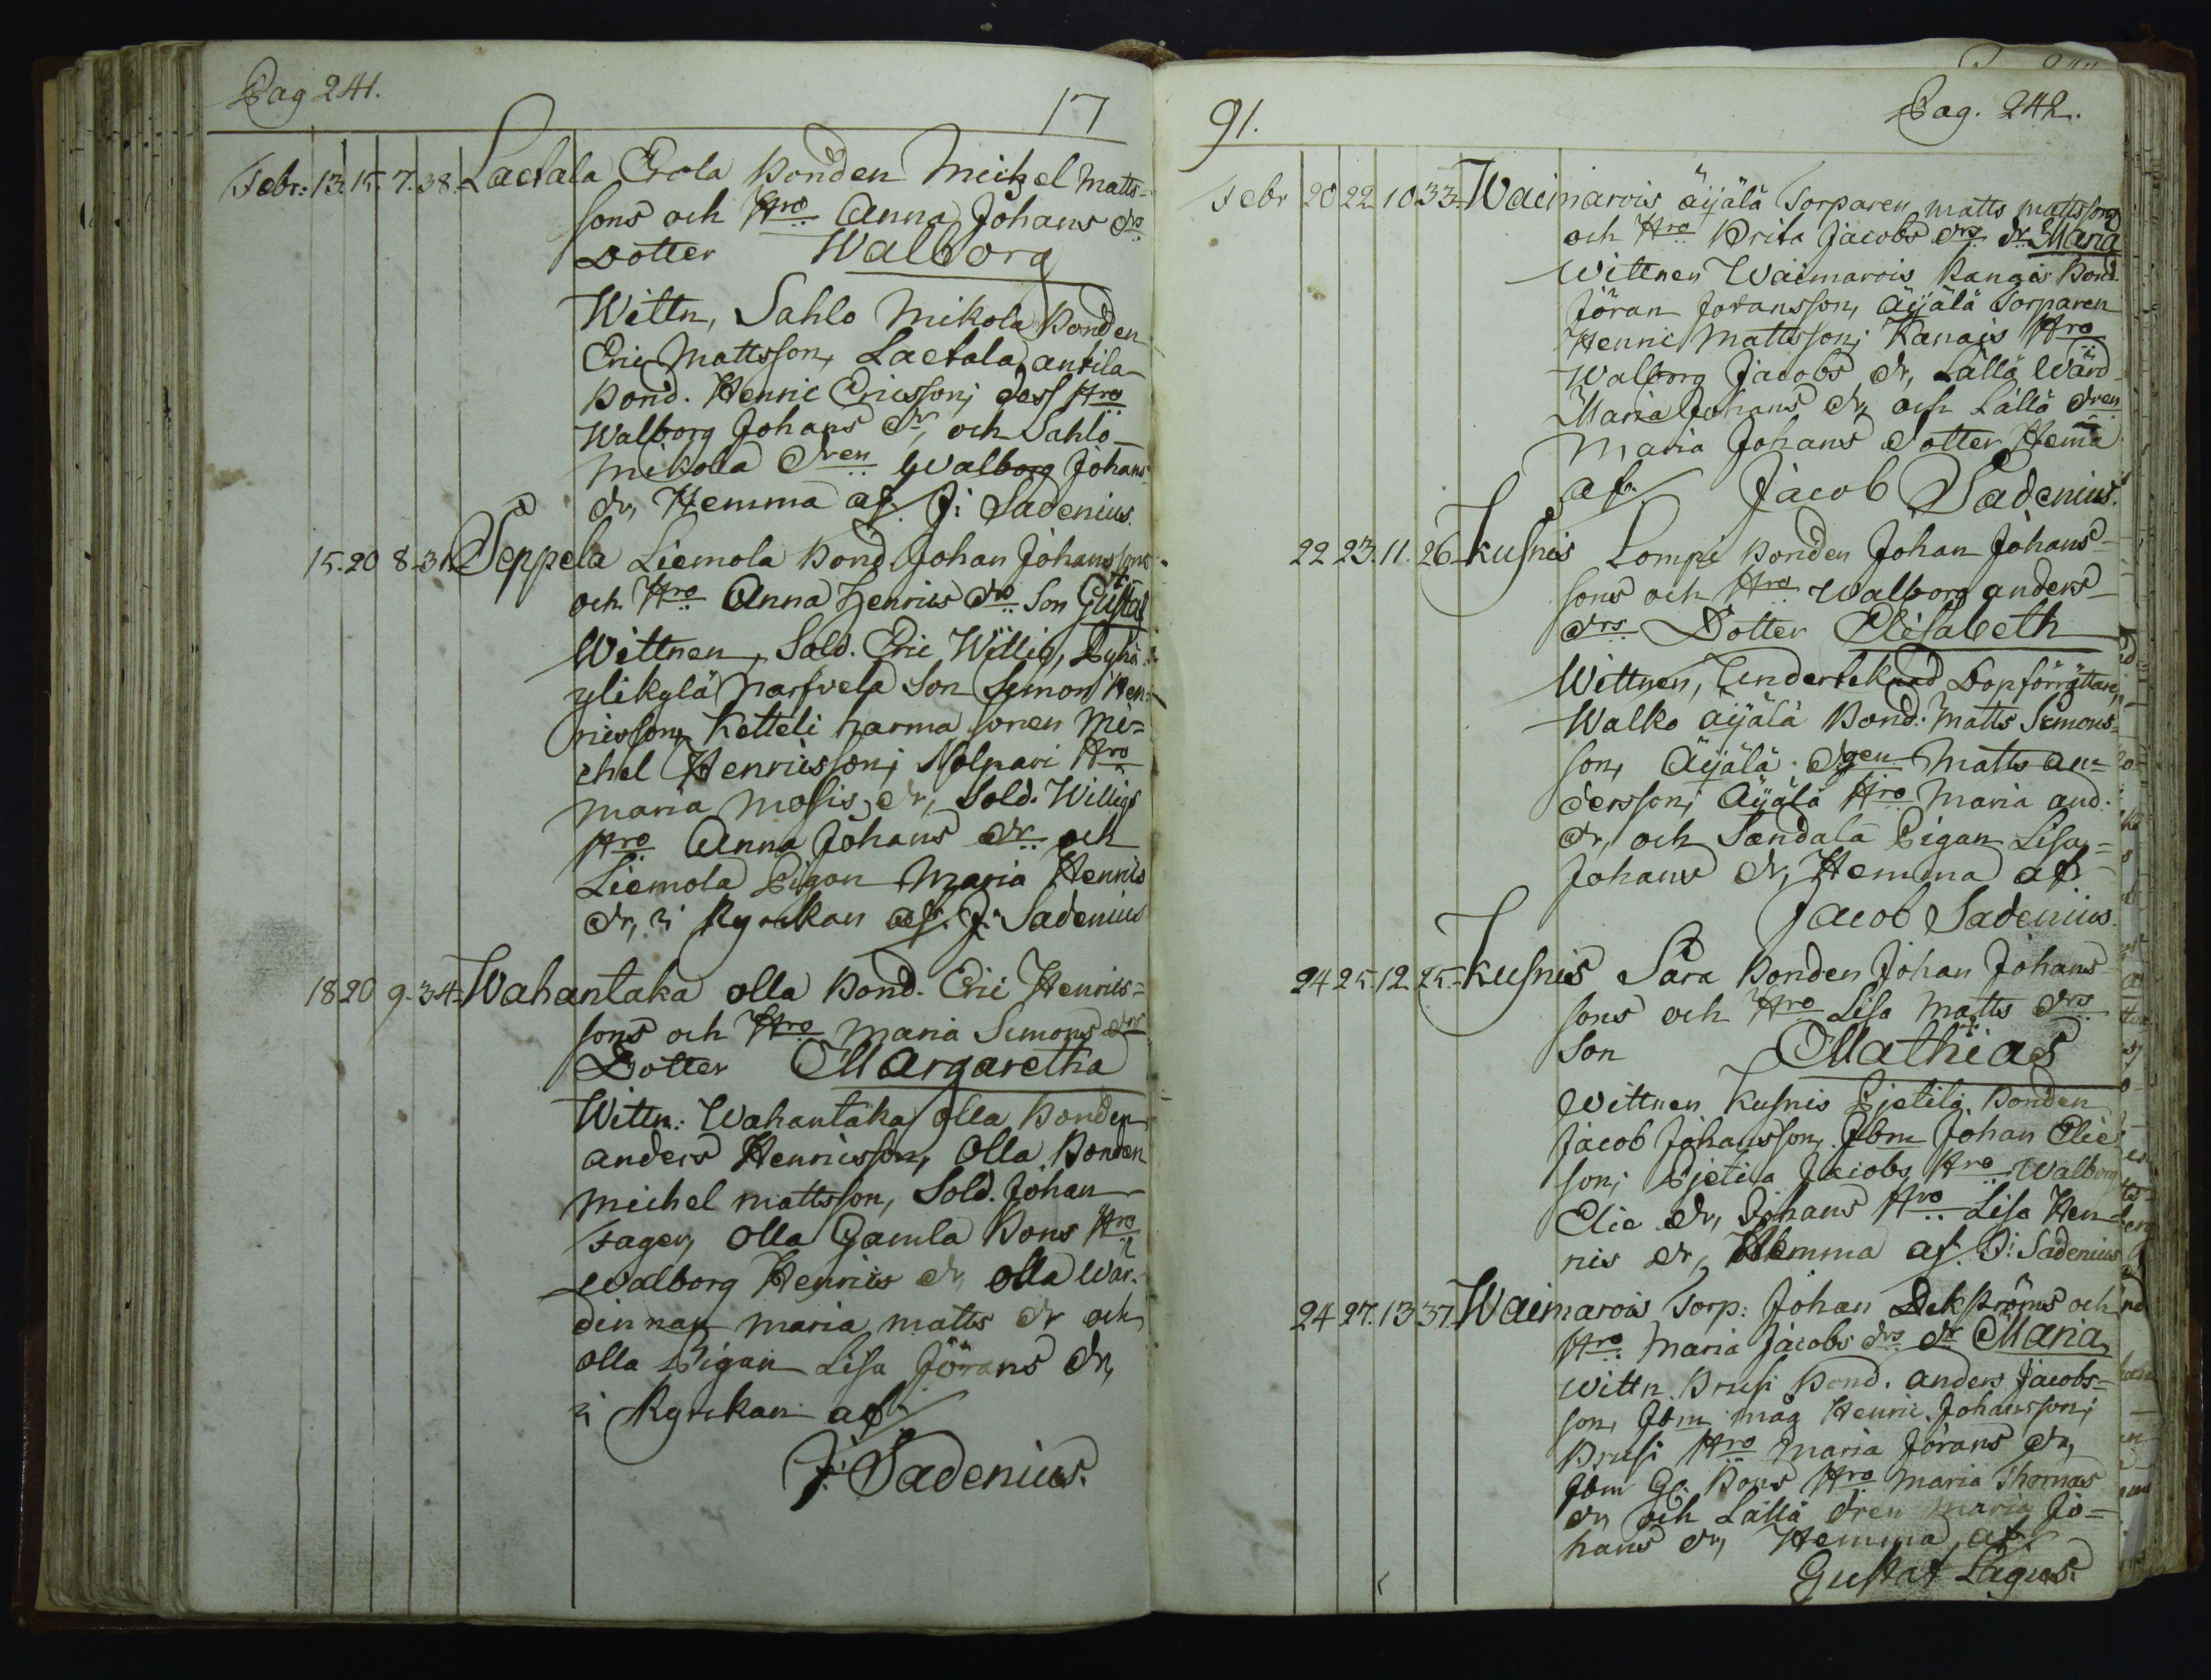 Pag 241.
17
Febr: 13. 15. 7. 38. Laetala Erola Bonden Michel Matts-
sons och Hro Anna Johans drs
Dotter Walborg
Wittn, Sahlo Mikola Bonden
Eric Mattsson, Laetala antila
Bond. Henric Ericsson; dess Hro
Walborg Johans dr, och Sahlo
Mikola dren Walborg Johans
dr, Hemma af. J: Sadenius.
15. 20 8. 31. Seppela Liemola Bond Johan Johans sons
och Hro Anna Henrics drs Son Gustaf
Wittnen, Sold. Eric Willig, Pyhä
ylikylä Marfvela Son Simon Hen-
ricsson, Ketteli harma sonen Mi=
chel Henricsson; Nolpari Hro
Maria Mosis dr, Sold. Willigs
Hro Anna Johans dr och
Liemola Pigan Maria Henrics
dr, i Kyrckan af. J: Sadenius
18 20 9. 34. Wahantaka olla Bond. Eric Henrics=
sons och Hro Maria Simons drs
Dotter Margaretha
Wittn: Wahantaka olla Bonden
anders Henricsson, Olla Bonden
Michel mattsson, Sold. Johan
Fager, olla Gamla Bons Hro
Walborg Henrics dr, olla Wär-
dinnan maria matts dr och
olla Pigan Lisa Jörans dr,
i Kyrckan af.
J: Sadenius.
91.
Pag. 242.
Febr 20 22 10 33. Waimarois äijälä Torparen matts mattssons
och Hro Brita Jacobs drs dr Maria
Wittnen Waimarois Kangais Bond
Jöran Joransson, Äijälä Torparen
Henric Mattsson; Kanais Hro
Walborg Jacobs dr, Lällä Wärd
Maria Johans dr, och Lällä dren
Maria Johans Dotter, Hema
af. Jacob Sadenius.
22 23. 11. 26. Kusnis Lompi Bonden Johan Johans-
sons och Hro Walborg anders
drs Dotter Elisabeth
Wittnen, Underteknad Dopförrättare,
Walko äijälä Bond: Matts Simons-
son, Äijälä dgen Matts an=
dersson; Äijälä Hro Maria and.
dr, och Sandala Pigan Lisa=
Johans dr, Hemma af
Jacob Sadenius.
24 25. 12. 25. Kusnis Sara Bonden Johan Johans
sons och Hro Lisa Matts drs
Son Mathias
Wittnen Kusnis Pjetilä Bonden
Jacob Johansson, Jbm Johan Elic
son; Pjetila Jacobs Hro Walborg
Elic dr, Johans Hro Lisa Hen-
ris dr, Hemma af. J: Sadenius
24 27. 13 37. Waimarois Torp: Johan Dekströms och
Hro Maria Jacobs drs dr Maria
Wittn. Brusi Bond. anders Jacobs=
son, Jbm måg Henric Johansson;
Brusi Hro Maria Jörans dr,
Jbm Gl. Bons Hro Maria Thomas
dr, och Lällä dren Maria Jo=
hans dr, Hemma af
Gustaf Lagus.